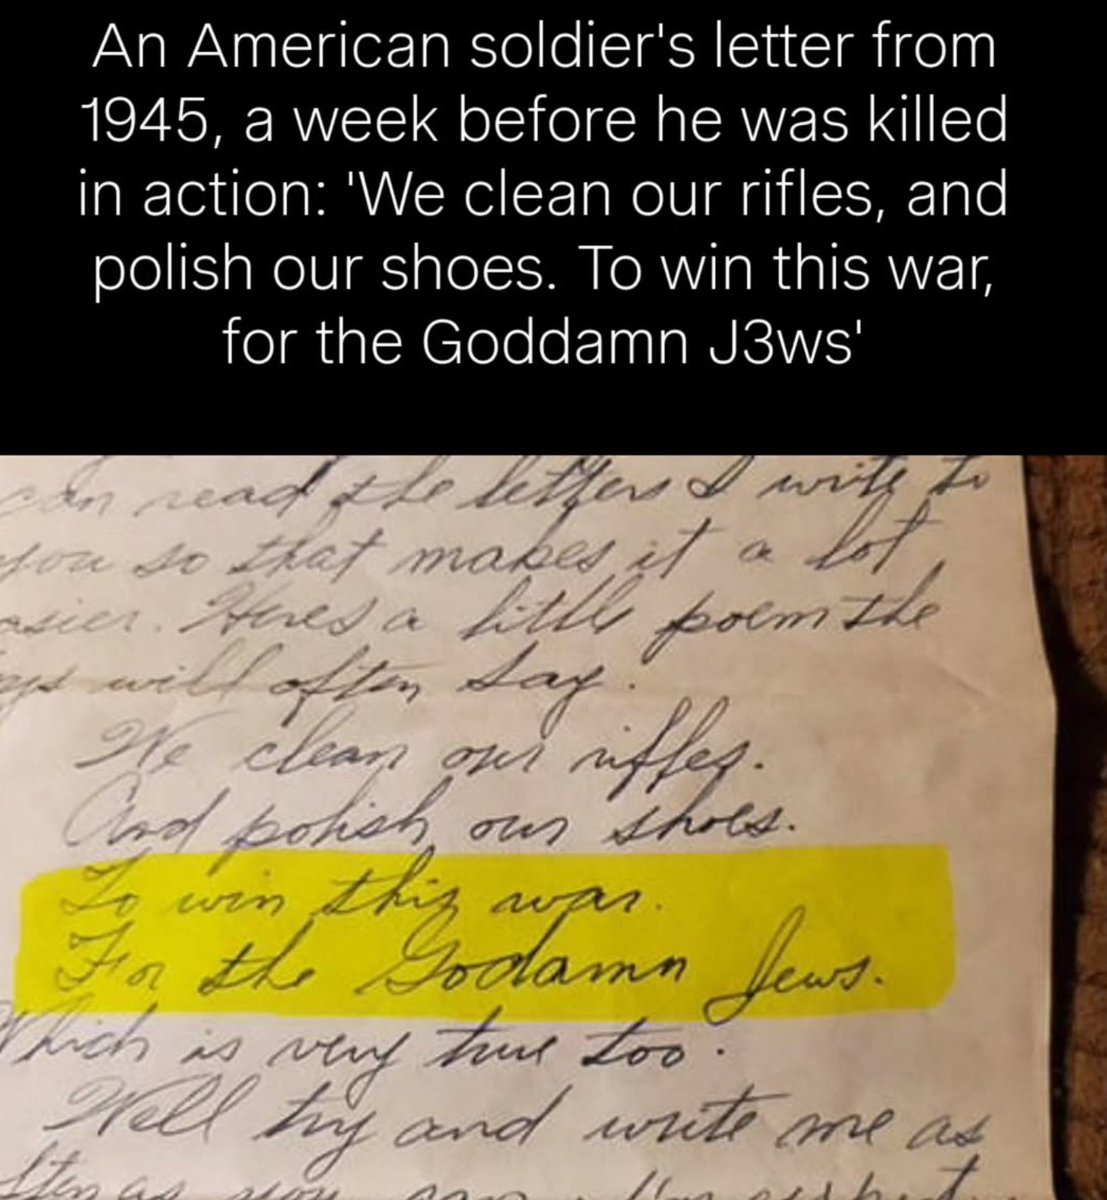 An American soldier's letter from
1945, a week before he was killed
in action: 'We clean our rifles, and
polish our shoes. To win this war,
for the Goddamn J3ws'
can read the letters I write to
you so that makes it a lot
easier. Heres a little poem the
will often say.
We clean our riffles.
And polish our shoes.
To win this war.
For the Godamn Jews.
Which is very true too.
Well try and write me as
often as you can